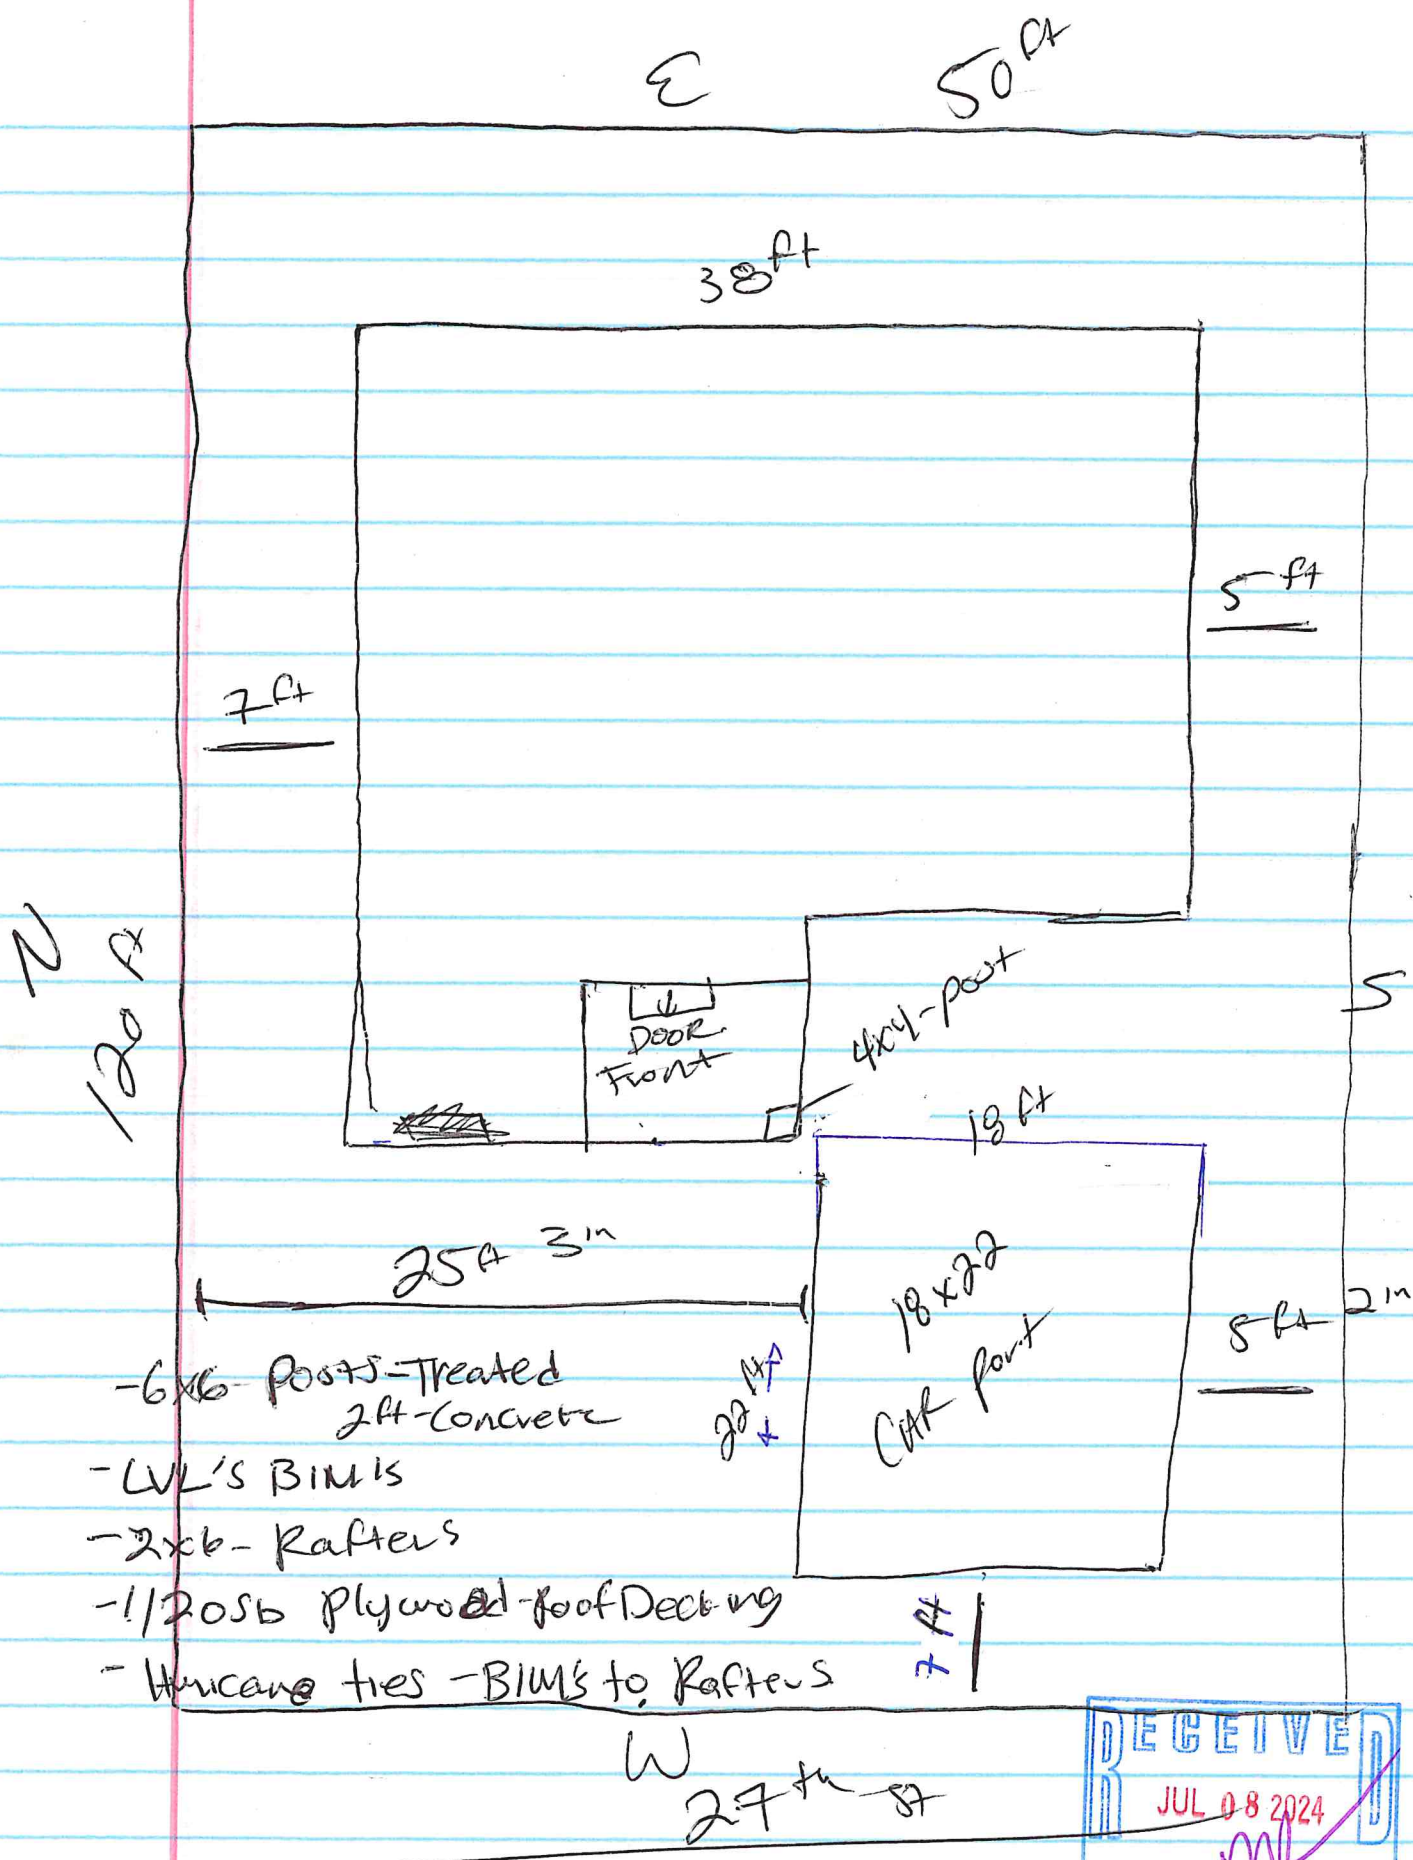 E 50 ft
38 ft
5 ft
7 ft
N
120 ft
S
4x4-post
DOOR
Front
18 ft
25 ft 3 in
18x22
CAR port
22 ft
5 ft 2 in
-6x6- Posts-Treated
2ft-Concrete
-LVL'S BIM'S
-2x6- Rafters
-1/2 OSb Plywood-Roof Decking
- Huricane ties -BIM's to Rafters
7 ft
W
27th st
RECEIVED
JUL 08 2024